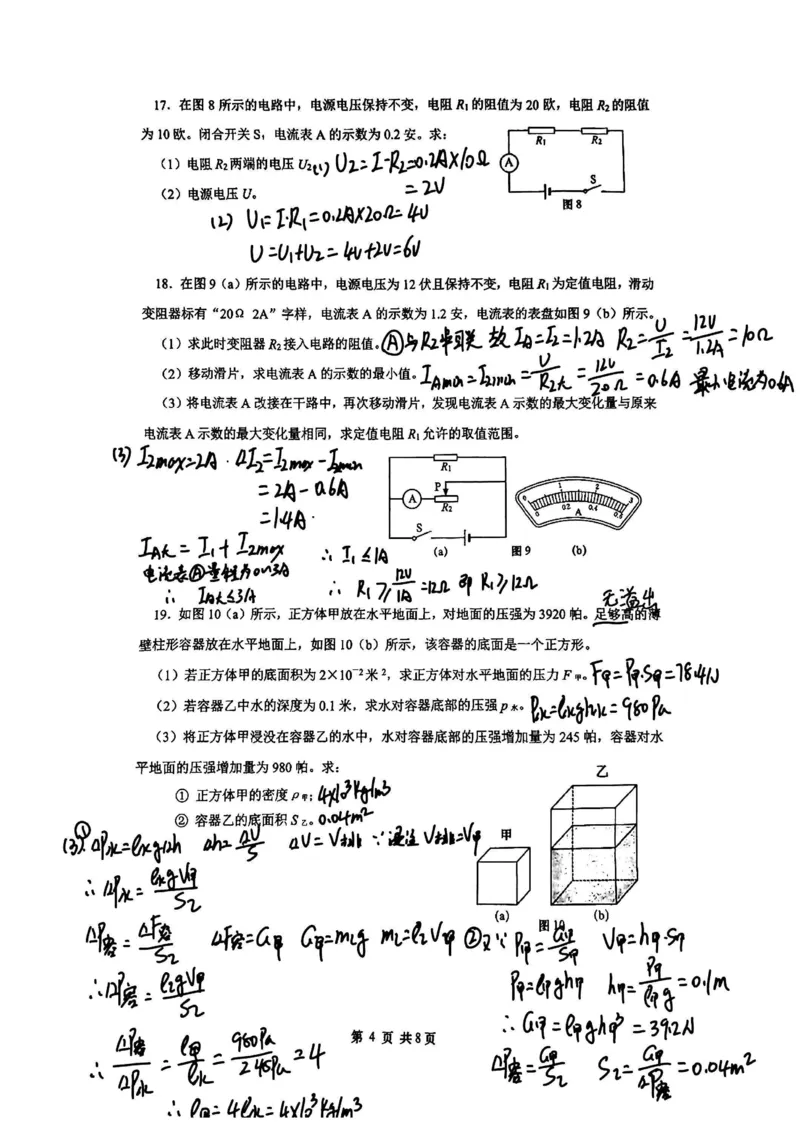 17. 在图 8 所示的电路中，电源电压保持不变，电阻 R₁的阻值为 20 欧，电阻 R₂的阻值
为 10 欧。闭合开关 S，电流表 A 的示数为 0.2 安。求：
(1) 电阻 R₂两端的电压 U₂ (1) U₂=I·R₂=0.2A×10Ω
=2V
(2) 电源电压 U。
R₁ R₂
A
S
图 8
(2) U₁=I·R₁=0.2A×20Ω=4V
U=U₁+U₂=4V+2V=6V
18. 在图 9（a）所示的电路中，电源电压为 12 伏且保持不变，电阻 R₁ 为定值电阻，滑动
变阻器标有“20Ω 2A”字样，电流表 A 的示数为 1.2 安，电流表的表盘如图 9（b）所示。
(1) 求此时变阻器 R₂接入电路的阻值。Ⓐ与R₂串联 故 I_A=I₂=1.2A R₂=U/I₂=12V/1.2A=10Ω
(2) 移动滑片，求电流表 A 的示数的最小值。I_Amin=I₂min=U/R₂大=12V/20Ω=0.6A 最小电流为0.6A
(3) 将电流表 A 改接在干路中，再次移动滑片，发现电流表 A 示数的最大变化量与原来
电流表 A 示数的最大变化量相同，求定值电阻 R₁ 允许的取值范围。
(3) I₂max=2A · ΔI₂=I₂max-I₂min
=2A-0.6A
=1.4A.
I_A大=I₁+I₂max
电流表Ⓐ量程为0~3A
∴ I_A大≤3A
∴ I₁≤1A
∴ R₁≥12V/1A=12Ω 即 R₁≥12Ω
R₁
P
A
R₂
S
(a)
图 9
0 1 2 3
0 0.2 0.4 0.6
A
(b)
无溢出
19. 如图 10（a）所示，正方体甲放在水平地面上，对地面的压强为 3920 帕。足够高的薄
壁柱形容器放在水平地面上，如图 10（b）所示，该容器的底面是一个正方形。
(1) 若正方体甲的底面积为 2×10⁻²米²，求正方体对水平地面的压力 F甲。F甲=P甲·S甲=78.4N
(2) 若容器乙中水的深度为 0.1 米，求水对容器底部的压强 p水。P水=ρ水gh水=980Pa
(3) 将正方体甲浸没在容器乙的水中，水对容器底部的压强增加量为 245 帕，容器对水
平地面的压强增加量为 980 帕。求：
① 正方体甲的密度 ρ甲；4×10³kg/m³
② 容器乙的底面积 S乙。0.04m²
甲
乙
(a)
图 10
(b)
(3)① ΔP水=ρ水gΔh Δh=ΔV/S ΔV=V排 ∵浸没 V排=V甲
∴ΔP水=ρ水gV甲/S乙
ΔP容=ΔF容/S乙 ΔF容=G甲 G甲=m乙g m乙=ρ乙V甲
∴ΔP容=ρ乙gV甲/S乙
∴ ΔP容/ΔP水=ρ甲/ρ水=980Pa/245Pa=4
∴ ρ甲=4ρ水=4×10³kg/m³
②又∵ P甲=G甲/S甲 V甲=h甲·S甲
P甲=ρ甲gh甲 h甲=P甲/ρ甲g=0.1m
∴ G甲=ρ甲gh甲³=39.2N
ΔP容=G甲/S乙 S乙=G甲/ΔP容=0.04m²
第 4 页 共8页